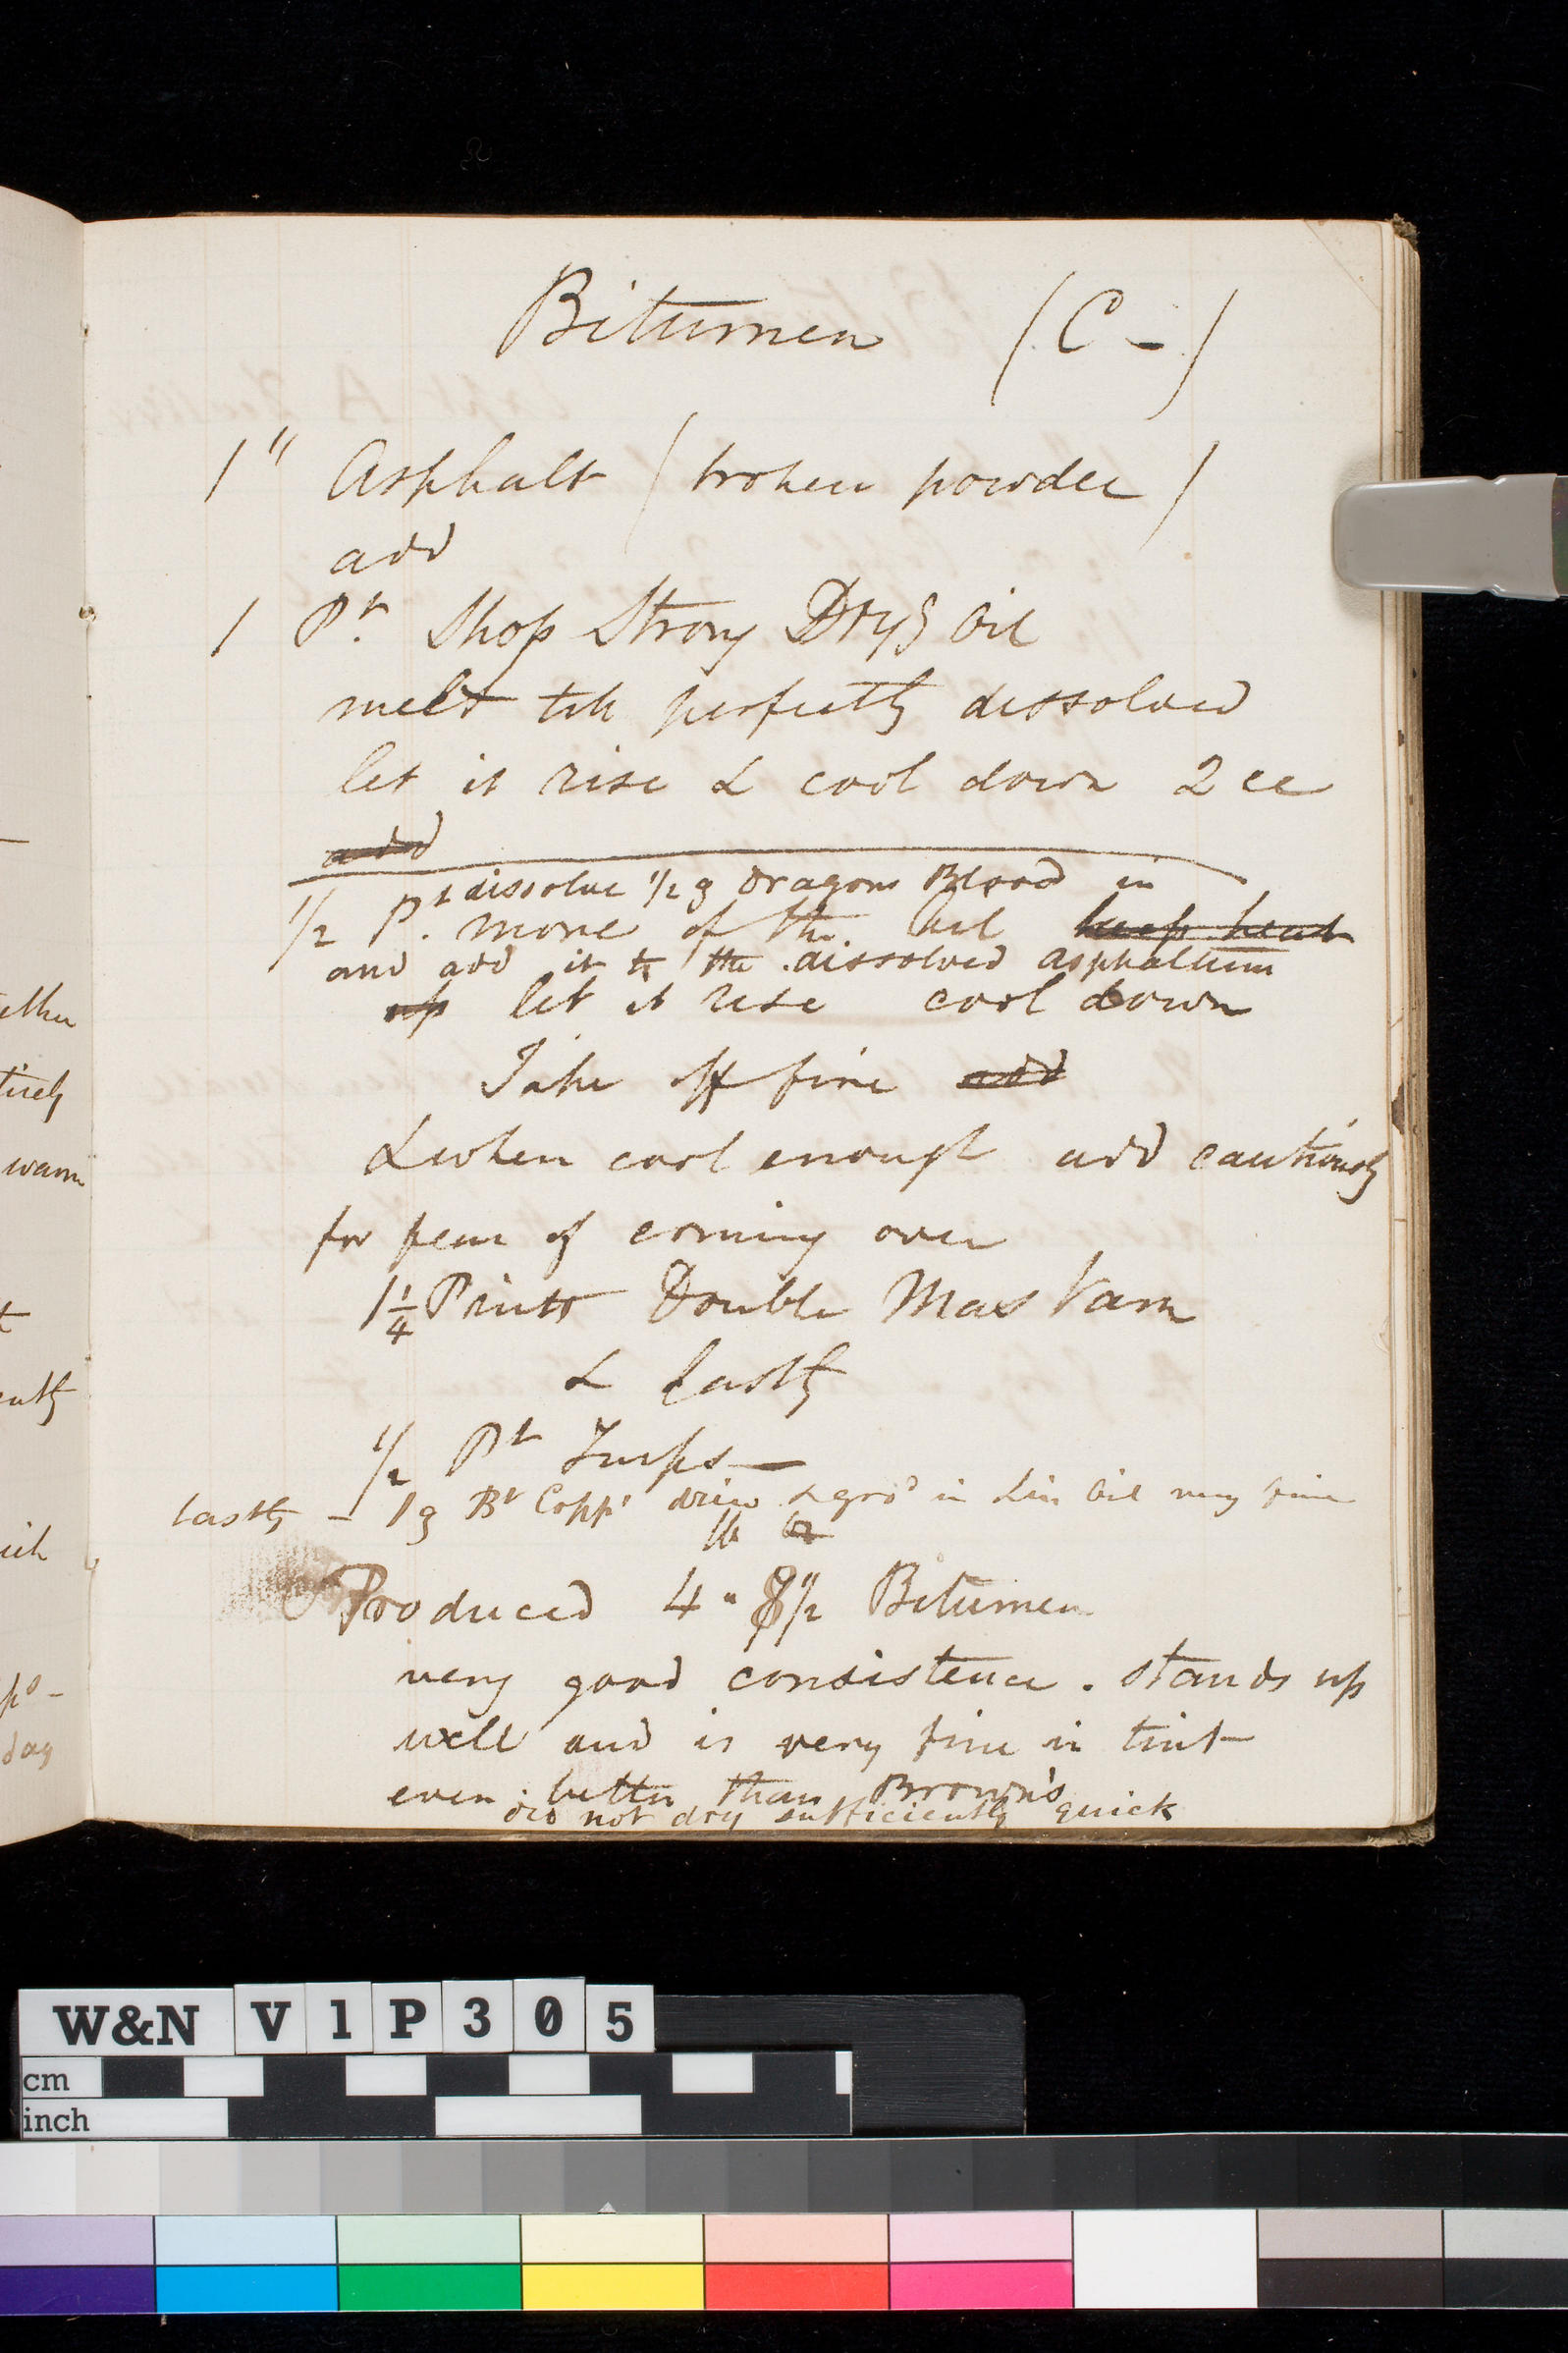 Bitumen (C -)
1" Asphalt (broken powder)
add
1 Pt. Shop Strong Dryg Oil
melt till perfectly dissolved
let it rise & cool down 2ce
add
dissolve 1/2 ℥ Dragons Blood in
1/2 Pt. more of the Oil keep heat
and add it to the dissolved asphaltum
up let it rise cool down
Take off fire add
& when cool enough add cautiously
for fear of coming over
1 1/4 Pints Double Mas Varn
& lastly
1/2 Pt Turps —
lastly - 1 ℥ Bt Copps dried & grod in Lin Oil very fine
lb oz
Produced 4 " 8 1/2 Bitumen
very good consistence. stands up
well and is very fine in tint
even better than Brown's
did not dry sufficiently quick
ether
tirely
warm
t
ently
ps -
day
W&N V1P305
cm
inch